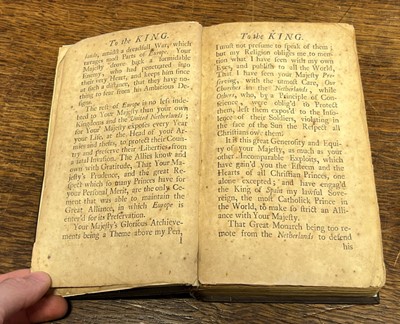 To the KING.
lands, amidst a dreadfull War, which
ravages most Parts of Europe. Your
Majesty drove back a formidable
Enemy, who had penetrated into
their very Heart, and keeps him since
at such a distance, that they have no-
thing to fear from his Ambitious De-
signs.
The rest of Europe is no less indeb-
ted to Your Majesty than your own
Kingdoms and the United Netherlands;
for Your Majesty exposes every Year
your Life, at the Head of your Ar-
my and theirs, to protect their Coun-
tries and preserve their Liberties from
a fatal Invasion. The Allies know and
own with Gratitude, That Your Ma-
jesty's Prudence, and the great Re-
spect which so many Princes have for
your Personal Merit, are the only Ce-
ment that was able to maintain the
Great Alliance, in which Europe is
enter'd for its Preservation.
Your Majesty's Glorious Atchieve-
ments being a Theme above my Pen,
I
To the KING.
I must not presume to speak of them;
but my Religion obliges me to men-
tion what I have seen with my own
Eyes, and publish to all the World,
That I have seen your Majesty Pre-
serving, with the utmost Care, Our
Churches in the Netherlands, while
Others, who, by a Principle of Con-
science, were oblig'd to Protect
them, left them expos'd to the Inso-
lence of their Soldiers, violating in
the face of the Sun the Respect all
Christians owe them.
It is this great Generosity and Equi-
ty of your Majesty, as much as your
other Incomparable Exploits, which
have gain'd you the Esteem and the
Hearts of all Christian Princes, one
alone excepted; and have engag'd
the King of Spain my lawful Sove-
reign, the most Catholick Prince in
the World, to make so strict an Alli-
ance with Your Majesty.
That Great Monarch being too re-
mote from the Netherlands to defend
his